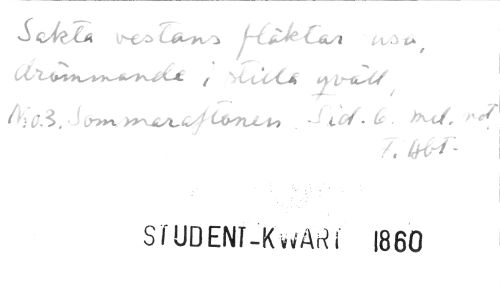 Sakta vestans fläktar susa,
drömmande i stilla qväll,
No. 3. Sommaraftonen Sid. 6. md. not.
T. Hbt.
STUDENT-KWART 1860